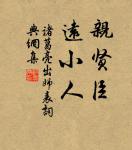 親賢臣
遠小人
諸葛亮出師表詞
典網集